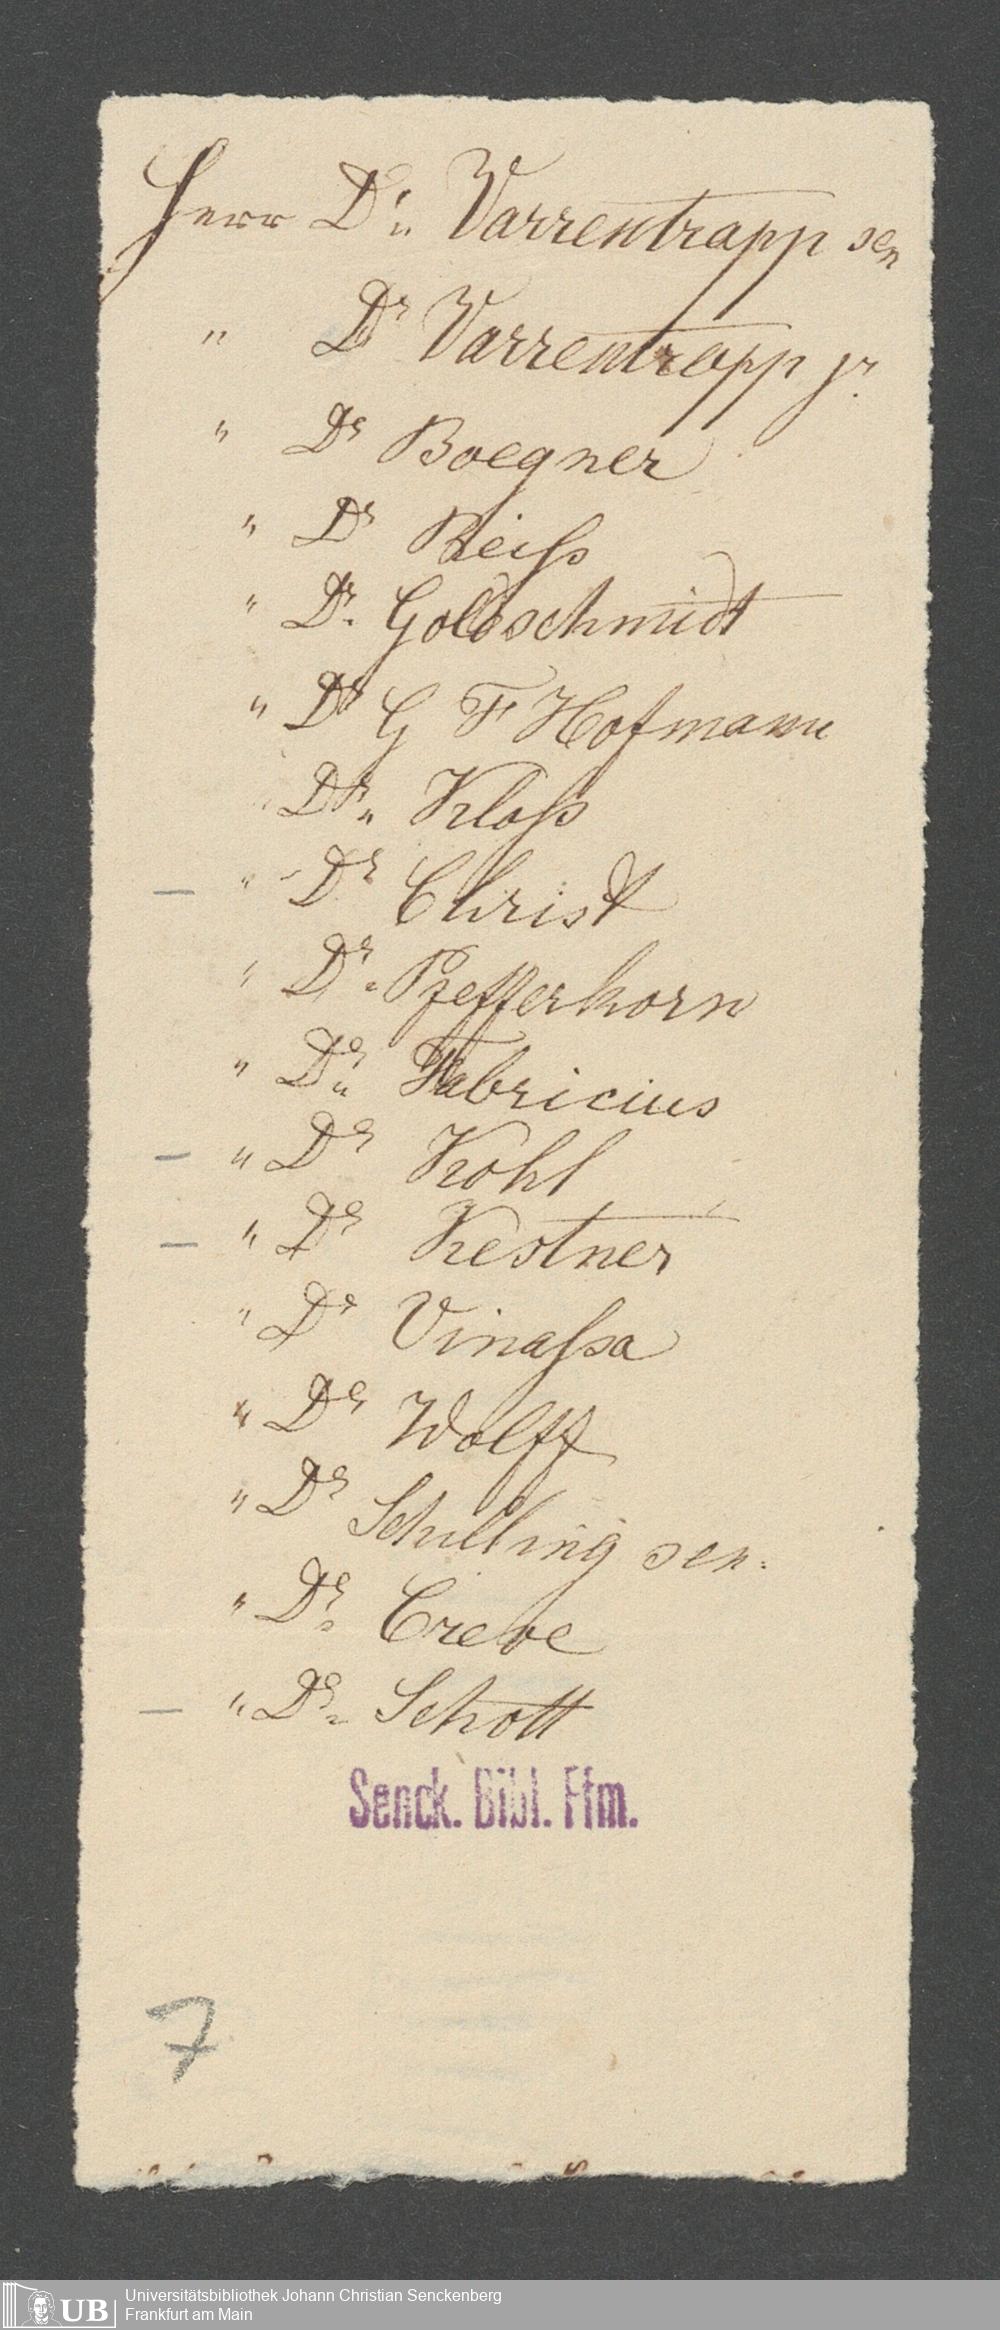 Herr Dr. Varrentrapp sen
" Dr Varrentrapp jr.
" Dr Boegner
" Dr Reiss
" Dr. Goldschmidt
" Dr G F Hofmann
Dr. Kloss
— " Dr Christ
" Dr. Pfefferkorn
" Dr. Fabricius
— " Dr Kohl
— " Dr Kestner
" Dr Vinassa
" Dr Wolff
" Dr Schilling sen.
" Dr. Creve
— " Dr. Schott
Senck. Bibl. Ffm.
7
UB Universitätsbibliothek Johann Christian Senckenberg
Frankfurt am Main